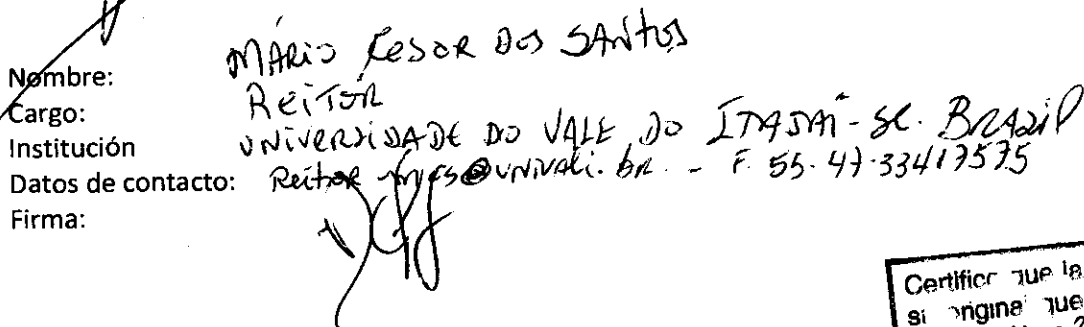 Nombre: MÁRIO CESAR DOS SANTOS
Cargo: REITOR
Institución UNIVERSIDADE DO VALE DO ITAJAÍ - SC. BRAZIL
Datos de contacto: Reitor @univali.br. - F. 55.47.33417575
Firma:
Certifico que la
si original que